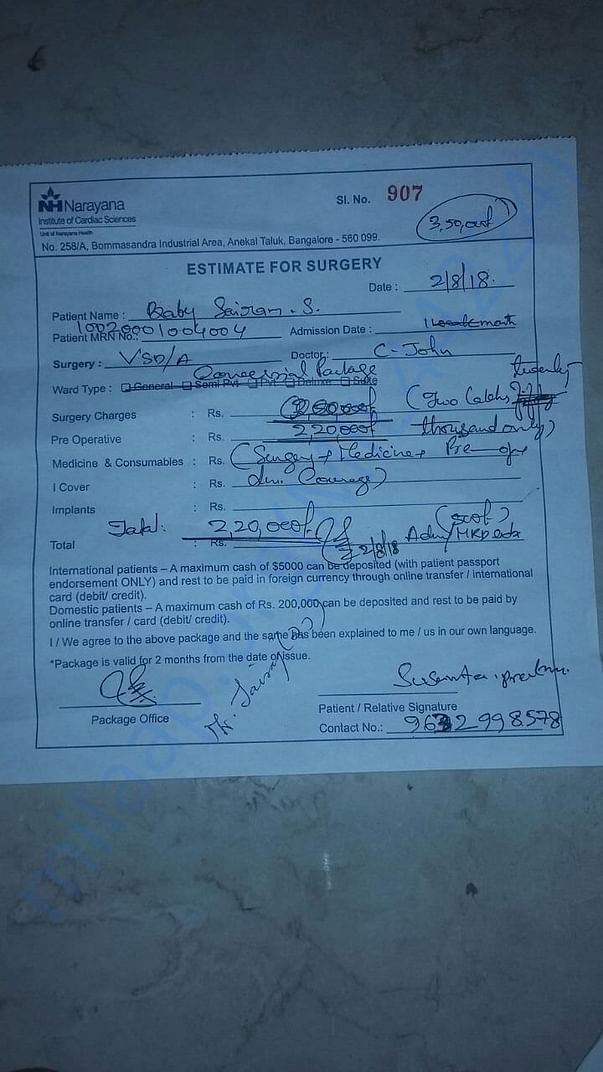 NH Narayana
Institute of Cardiac Sciences
Unit of Narayana Health
Sl. No. 907
3,50,000/-
No. 258/A, Bommasandra Industrial Area, Anekal Taluk, Bangalore - 560 099.
ESTIMATE FOR SURGERY
Date : 2/8/18.
Patient Name : Baby Sairam . S.
Patient MRN No.: 10020001004004 Admission Date :
Surgery : VSD/A Doctor: C- John
Concessional Package
Ward Type : General Semi Pvt Pvt Deluxe Suite
twenty
Surgery Charges : Rs. (Two Lakhs
Pre Operative : Rs. 2,20,000/- thousand only)
Medicine & Consumables : Rs. (Surgery + Medicine + Pre-op
I Cover : Rs.
Implants : Rs.
Total: 2,20,000/-
Total : Rs. 2/8/18
International patients – A maximum cash of $5000 can be deposited (with patient passport
endorsement ONLY) and rest to be paid in foreign currency through online transfer / international
card (debit/ credit).
Domestic patients – A maximum cash of Rs. 200,000 can be deposited and rest to be paid by
online transfer / card (debit/ credit).
I / We agree to the above package and the same has been explained to me / us in our own language.
*Package is valid for 2 months from the date of issue.
Package Office
Patient / Relative Signature
Contact No.: 9632998578
milaap.org